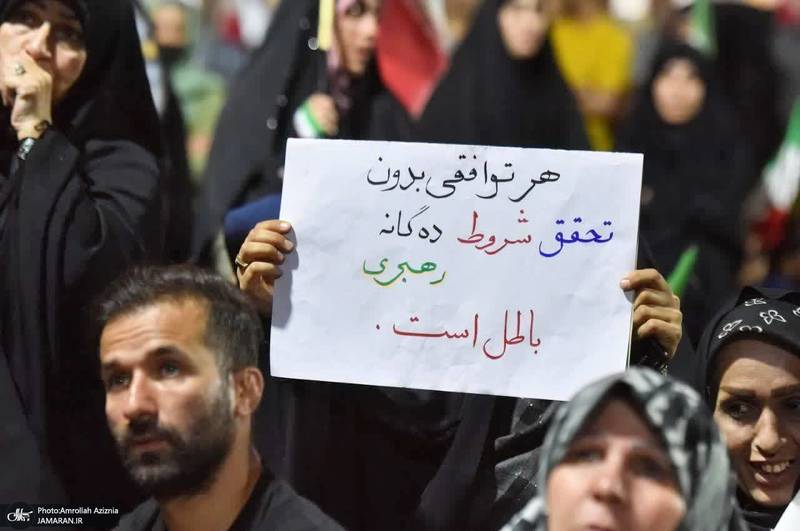 هر توافقی بدون
تحقق شروط ده گانه
رهبری
باطل است .
Photo:Amrollah Aziznia
JAMARAN.IR